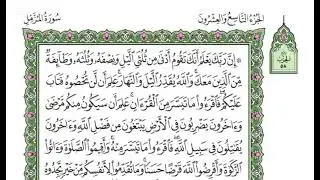 سُورَةُ المُزَّمِّل
الجُزْءُ التَّاسِعُ وَالعِشْرُونَ
۞ إِنَّ رَبَّكَ يَعْلَمُ أَنَّكَ تَقُومُ أَدْنَىٰ مِن ثُلُثَيِ ٱلَّيْلِ وَنِصْفَهُۥ وَثُلُثَهُۥ وَطَآئِفَةٌ
مِّنَ ٱلَّذِينَ مَعَكَۚ وَٱللَّهُ يُقَدِّرُ ٱلَّيْلَ وَٱلنَّهَارَۚ عَلِمَ أَن لَّن تُحْصُوهُ فَتَابَ
عَلَيْكُمْۖ فَٱقْرَءُوا۟ مَا تَيَسَّرَ مِنَ ٱلْقُرْءَانِۚ عَلِمَ أَن سَيَكُونُ مِنكُم مَّرْضَىٰ
وَءَاخَرُونَ يَضْرِبُونَ فِى ٱلْأَرْضِ يَبْتَغُونَ مِن فَضْلِ ٱللَّهِۙ وَءَاخَرُونَ
يُقَٰتِلُونَ فِى سَبِيلِ ٱللَّهِۖ فَٱقْرَءُوا۟ مَا تَيَسَّرَ مِنْهُۚ وَأَقِيمُوا۟ ٱلصَّلَوٰةَ وَءَاتُوا۟
ٱلزَّكَوٰةَ وَأَقْرِضُوا۟ ٱللَّهَ قَرْضًا حَسَنًاۚ وَمَا تُقَدِّمُوا۟ لِأَنفُسِكُم مِّنْ خَيْرٍ تَجِدُوهُ
الحزب
٥٨